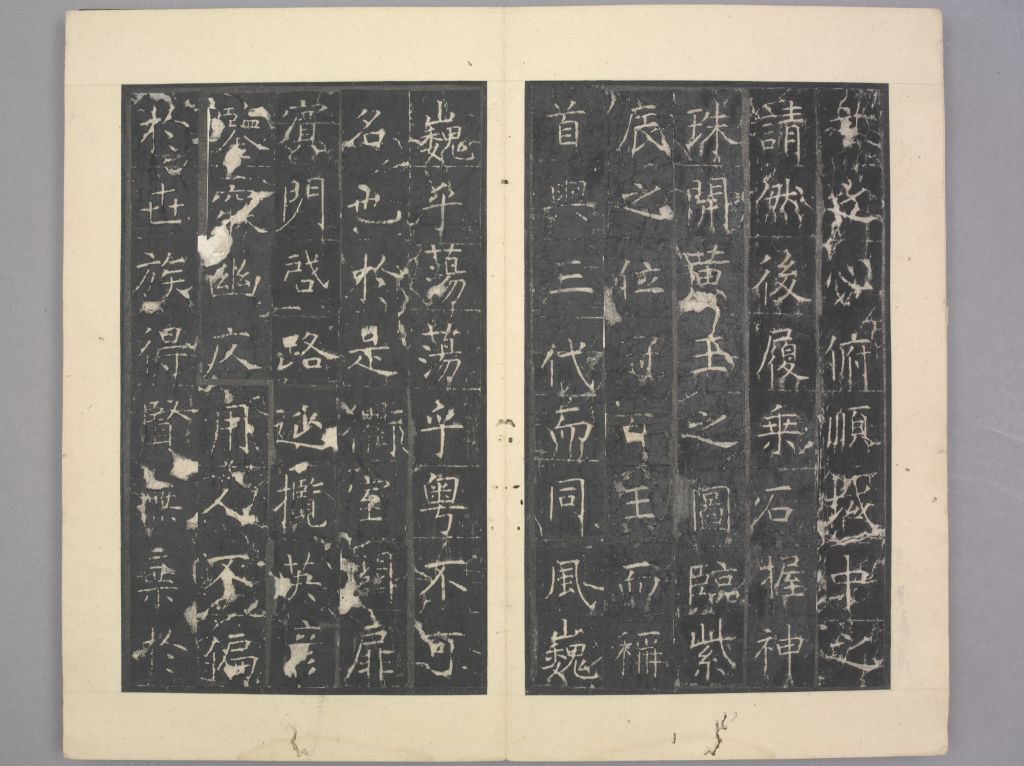 之心俯順域中之
請然後履乗石握神
珠開黃玉之圖臨紫
辰之位可王而稱
首與三代而同風巍
巍乎蕩蕩乎粵不可
名也於是衢室闢扉
賓門啓路延攬英彥
幽仄用人不偏
於世族得賢無棄於